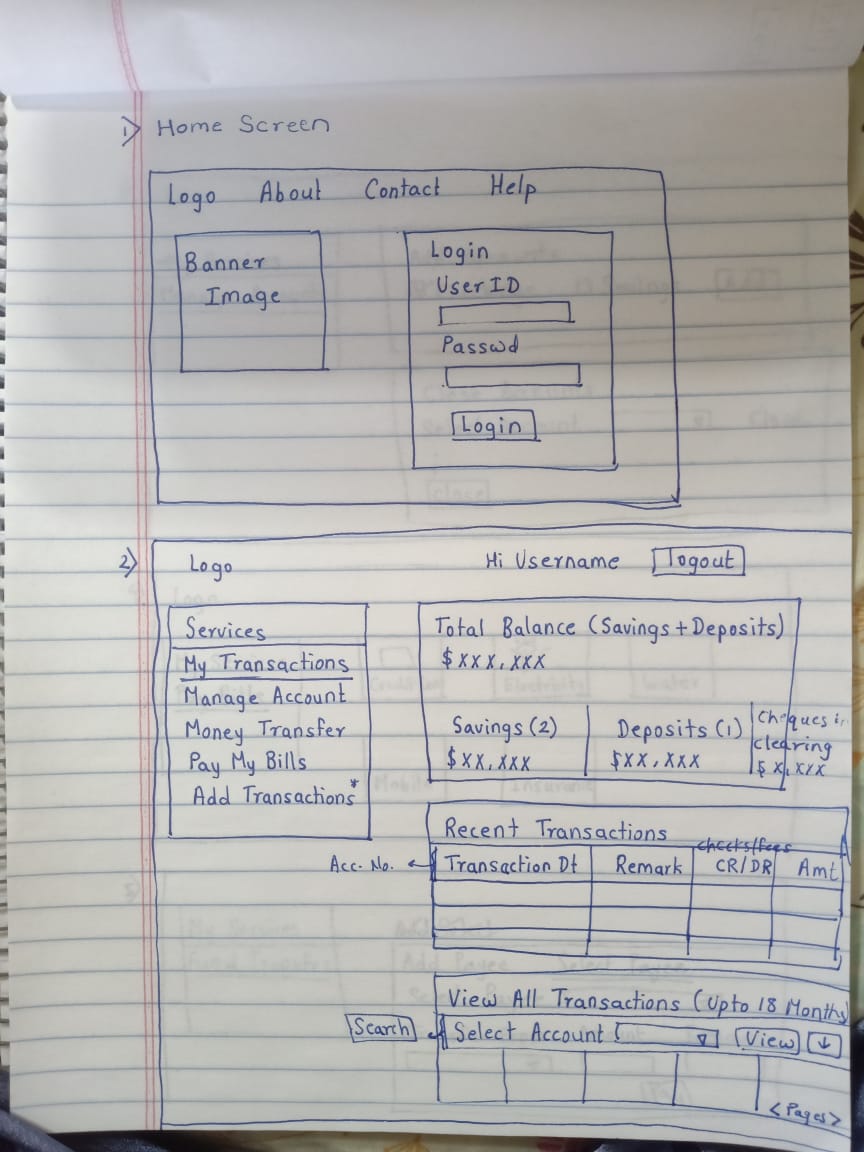 1) Home Screen
Logo About Contact Help
Banner
Image
Login
User ID
Passwd
Login
2) Logo Hi Username Logout
Services
My Transactions
Manage Account
Money Transfer
Pay My Bills
Add Transactions*
Total Balance (Savings + Deposits)
$ xxx, xxx
Savings (2)
$ xx, xxx
Deposits (1)
$xx, xxx
Cheques in
clearing
$ x, xxx
Recent Transactions
checks/fees
Acc. No. ← Transaction Dt Remark CR/DR Amt
View All Transactions (Upto 18 Months)
Search Select Account View ↓
<Pages>